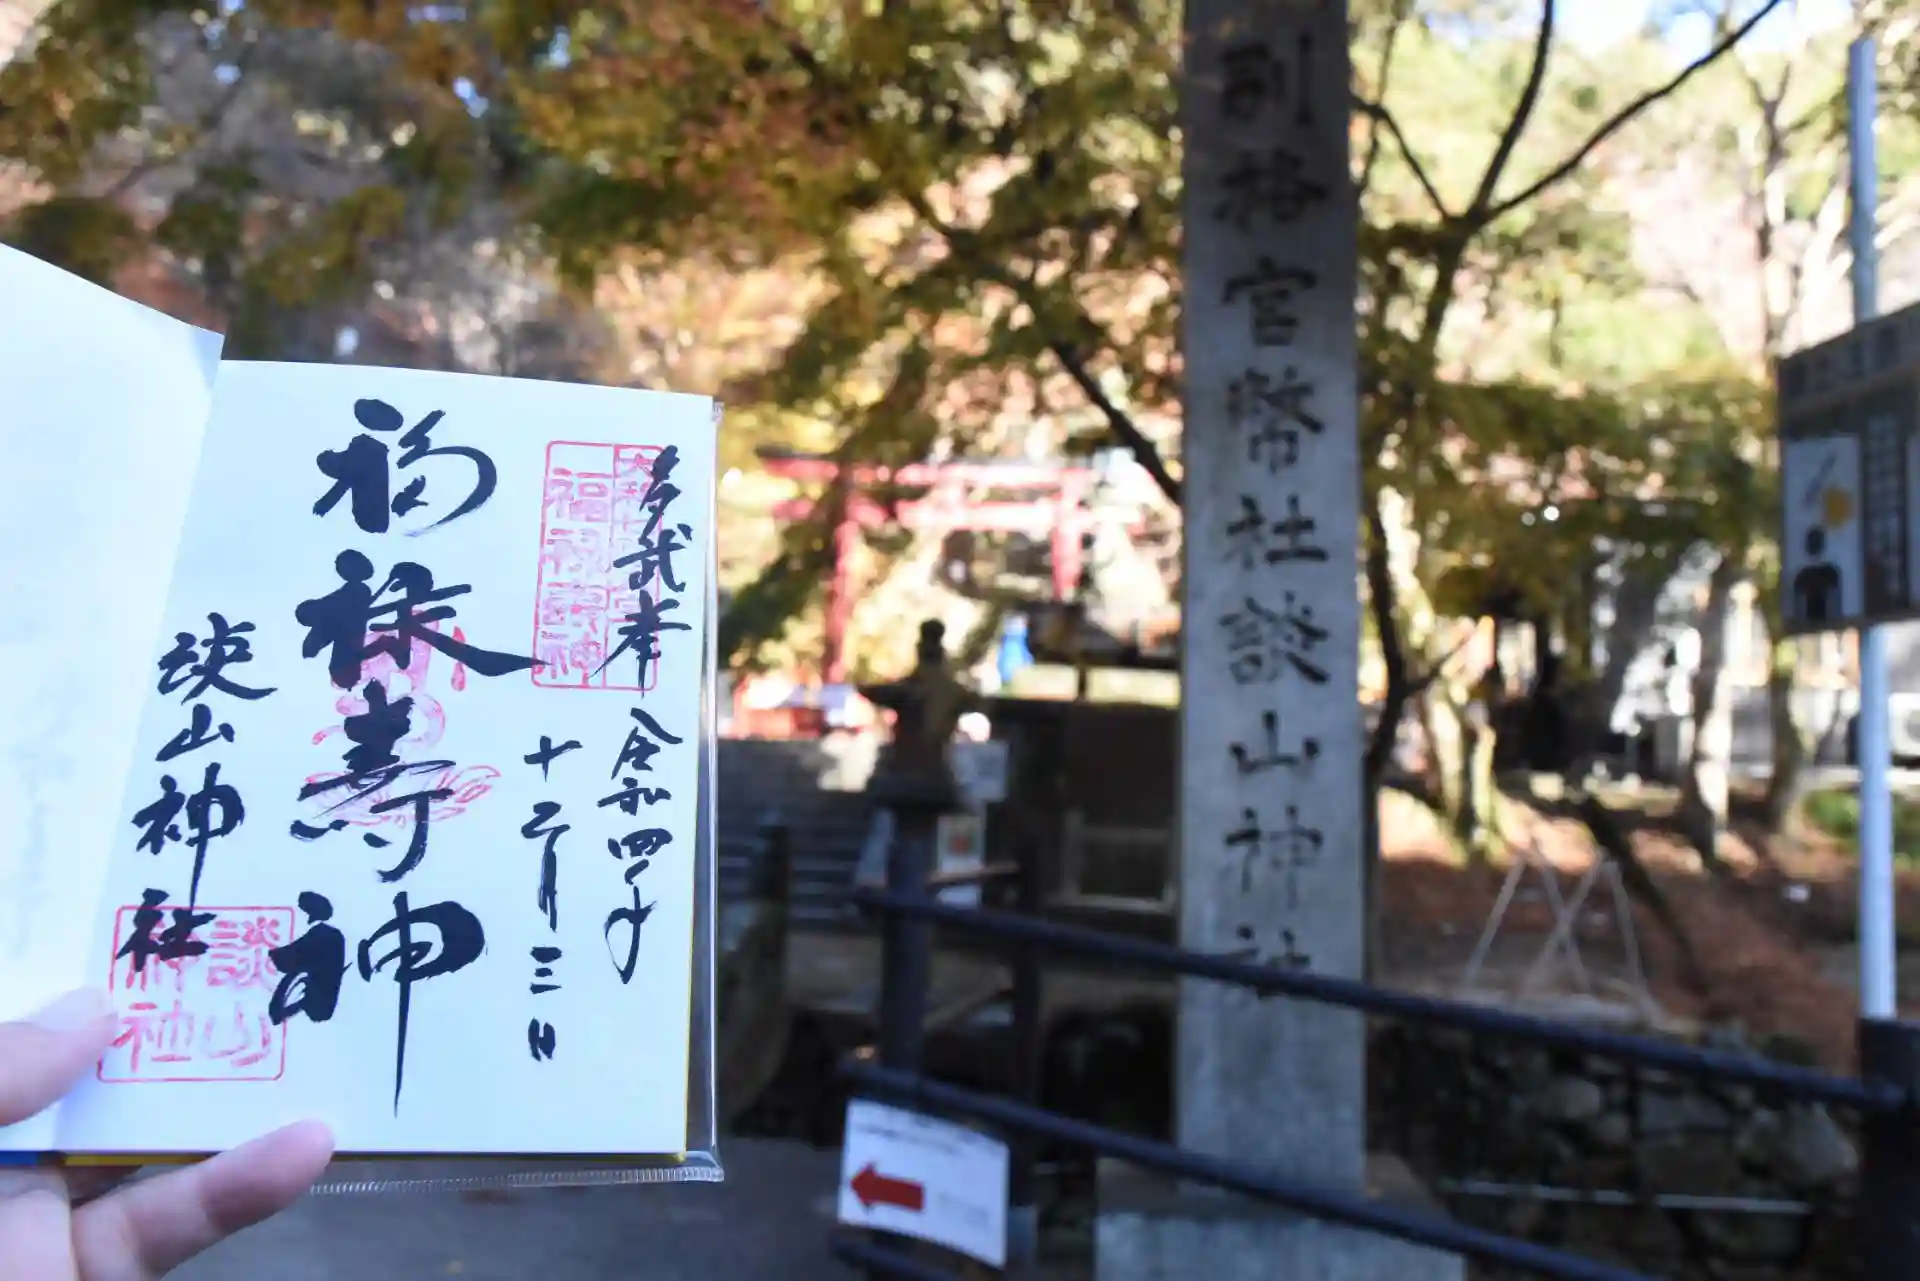 多武峯
令和四年
十二月三日
福禄寿神
談山神社
福禄寿神
談山神社
別格官幣社談山神社